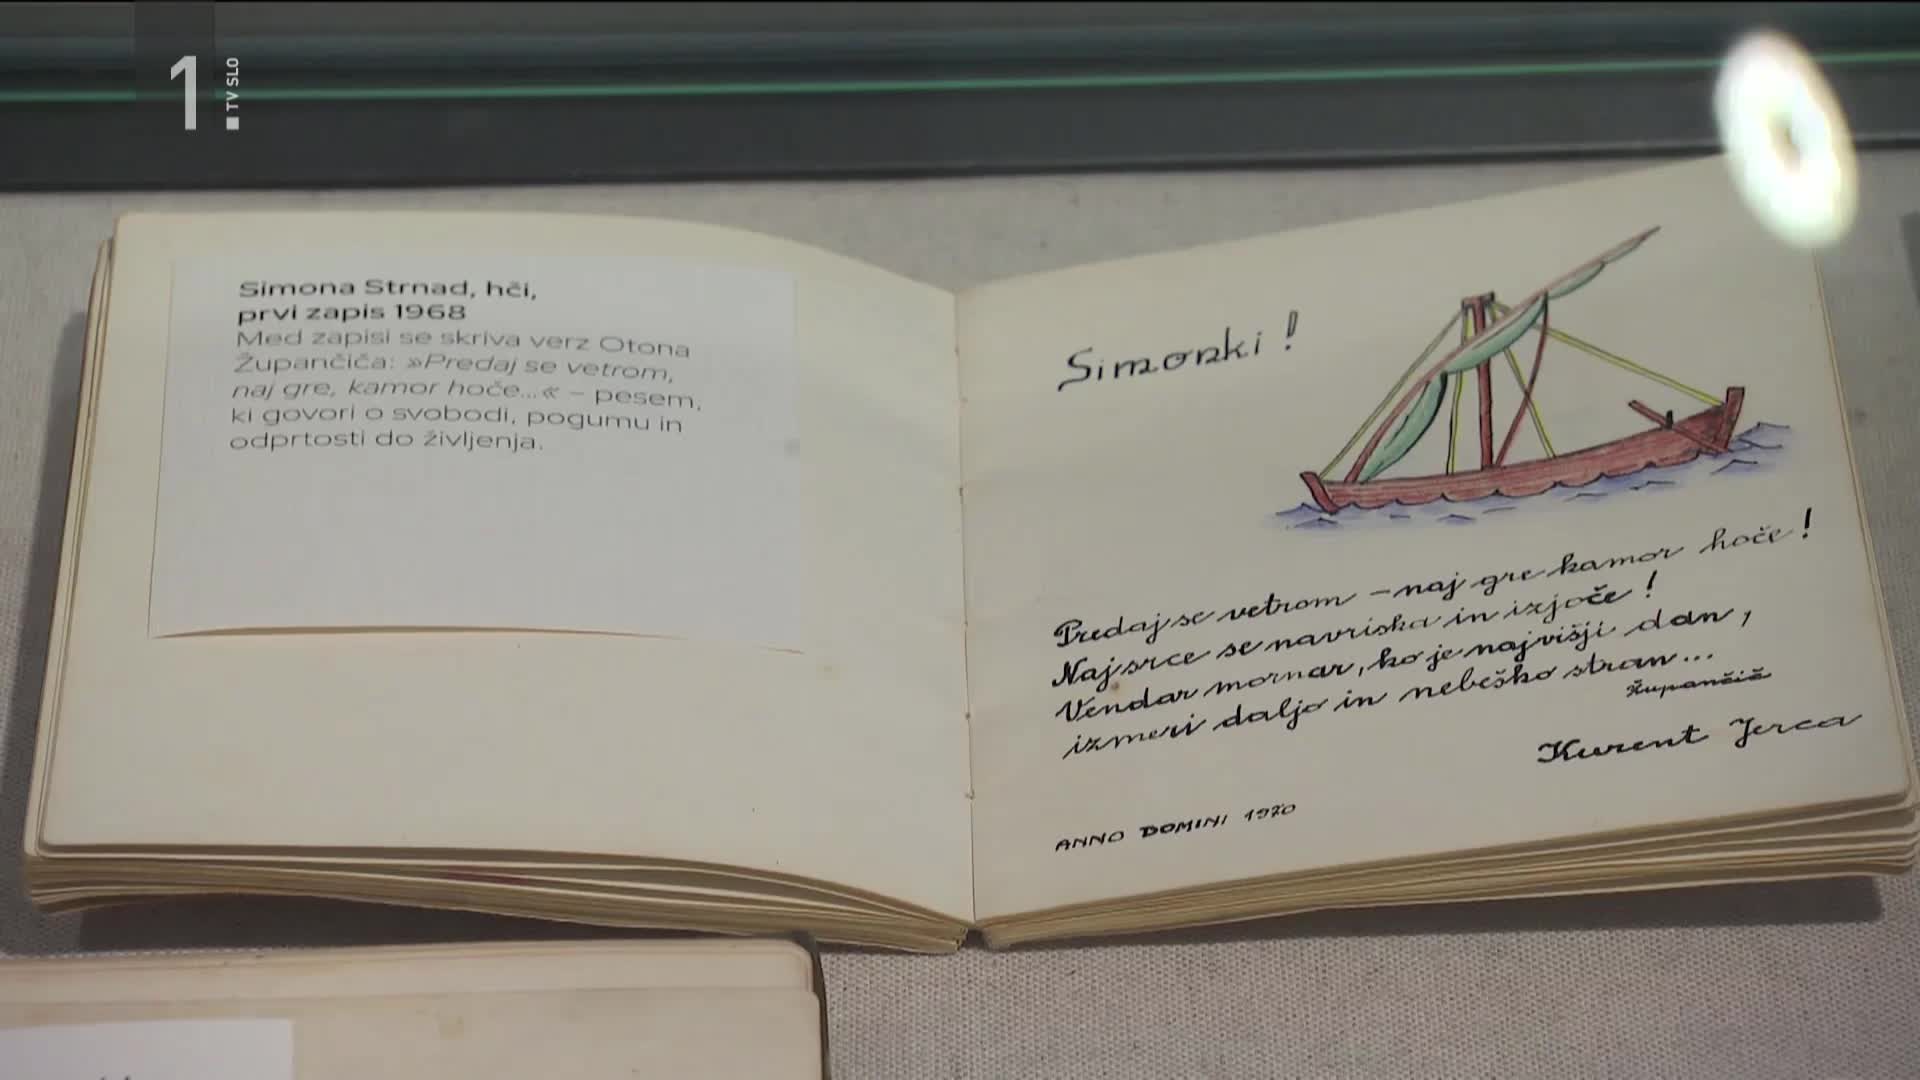 1.
TV SLO
Simona Strnad, hči,
prvi zapis 1968
Med zapisi se skriva verz Otona
Župančiča: »Predaj se vetrom,
naj gre, kamor hoče...« – pesem,
ki govori o svobodi, pogumu in
odprtosti do življenja.
Simonki!
Predaj se vetrom – naj gre kamor hoče!
Naj srce se navriska in izjoče!
Vendar mornar, ko je najvišji dan,
izmeri daljo in nebeško stran...
Župančič
Kurent Jerca
ANNO DOMINI 1970